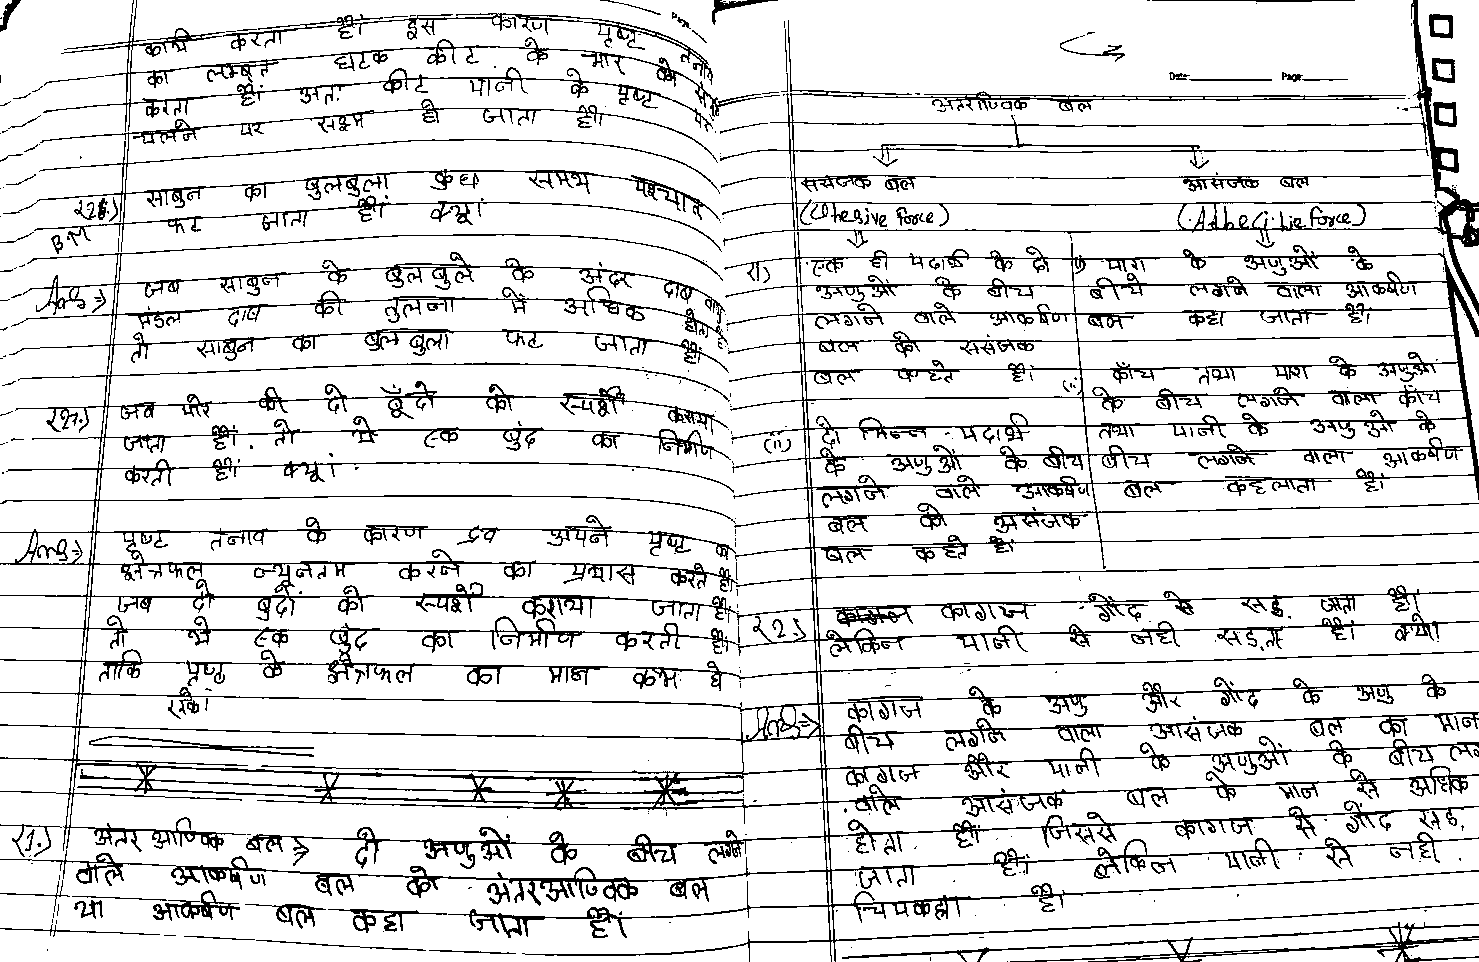 कार्य करता है। इस कारण पृष्ट तनाव
का लम्बत घटक कीट के भार को
करता है। अतः कीट पानी के पृष्ट पर
चलने पर सक्षम हो जाता है।
साबुन का बुलबुला कुछ समय पश्चात
फट जाता है। क्यूं।
Ans⇒ जब साबुन के बुलबुले के अंदर दाब वायु
मंडल दाब की तुलना में अधिक होता है
तो साबुन का बुलबुला फट जाता है।
जब पोर की दो बूँदो को स्पर्श कराया
जाता है। तो ये एक बुंद का निर्माण
करती है। क्यूं।
Ans⇒ पृष्ट तनाव के कारण द्रव अपने पृष्ट का
क्षेत्रफल न्यूनतम करने का प्रयास करते है।
जब दो बुदों को स्पर्श कराया जाता है।
तो ये एक बुंद का निर्माण करती है।
ताकि पृष्ट के क्षेत्रफल का मान कम हो
सके।
अंतर आण्विक बल⇒ दो अणुओं के बीच लगने
वाले आकर्षण बल को अंतरआण्विक बल
या आकर्षण बल कहा जाता है।
Date Page
अंतराण्विक बल
ससंजक बल आसंजक बल
(Chesive force) (Adhecihie force)
(i) एक ही पदार्थ के दो
अणुओं के बीच
लगने वाले आकर्षण
बल को ससंजक
बल कहते है।
(ii) दो भिन्न पदार्थ
के अणुओं के बीच
लगने वाले आकर्षण
बल को आसंजक
बल कहते है।
(i) पारा के अणुओं के
बीच लगने वाला आकर्षण
बल कहा जाता है।
(ii) काँच तथा पारा के अणुओ
के बीच लगने वाला काँच
तथा पानी के अणुओ के
बीच लगने वाला आकर्षण
बल कहलाता है।
कागज गोंद से सट जाता है।
लेकिन पानी से नही सड़ता है। क्यो।
Ans⇒ कागज के अणु और गोंद के अणु के
बीच लगने वाला आसंजक बल का मान
कागज और पानी के अणुओं के बीच
वाले आसंजक बल के मान से अधिक
होता है। जिससे कागज से गोंद सड़
जाता है। लेकिन पानी से नही
चिपकता है।